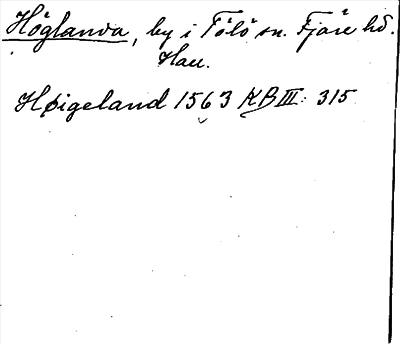 Höglanda, by i Tölö sn. Fjäre hd.
Hall.
Høigeland 1563 KB III: 315